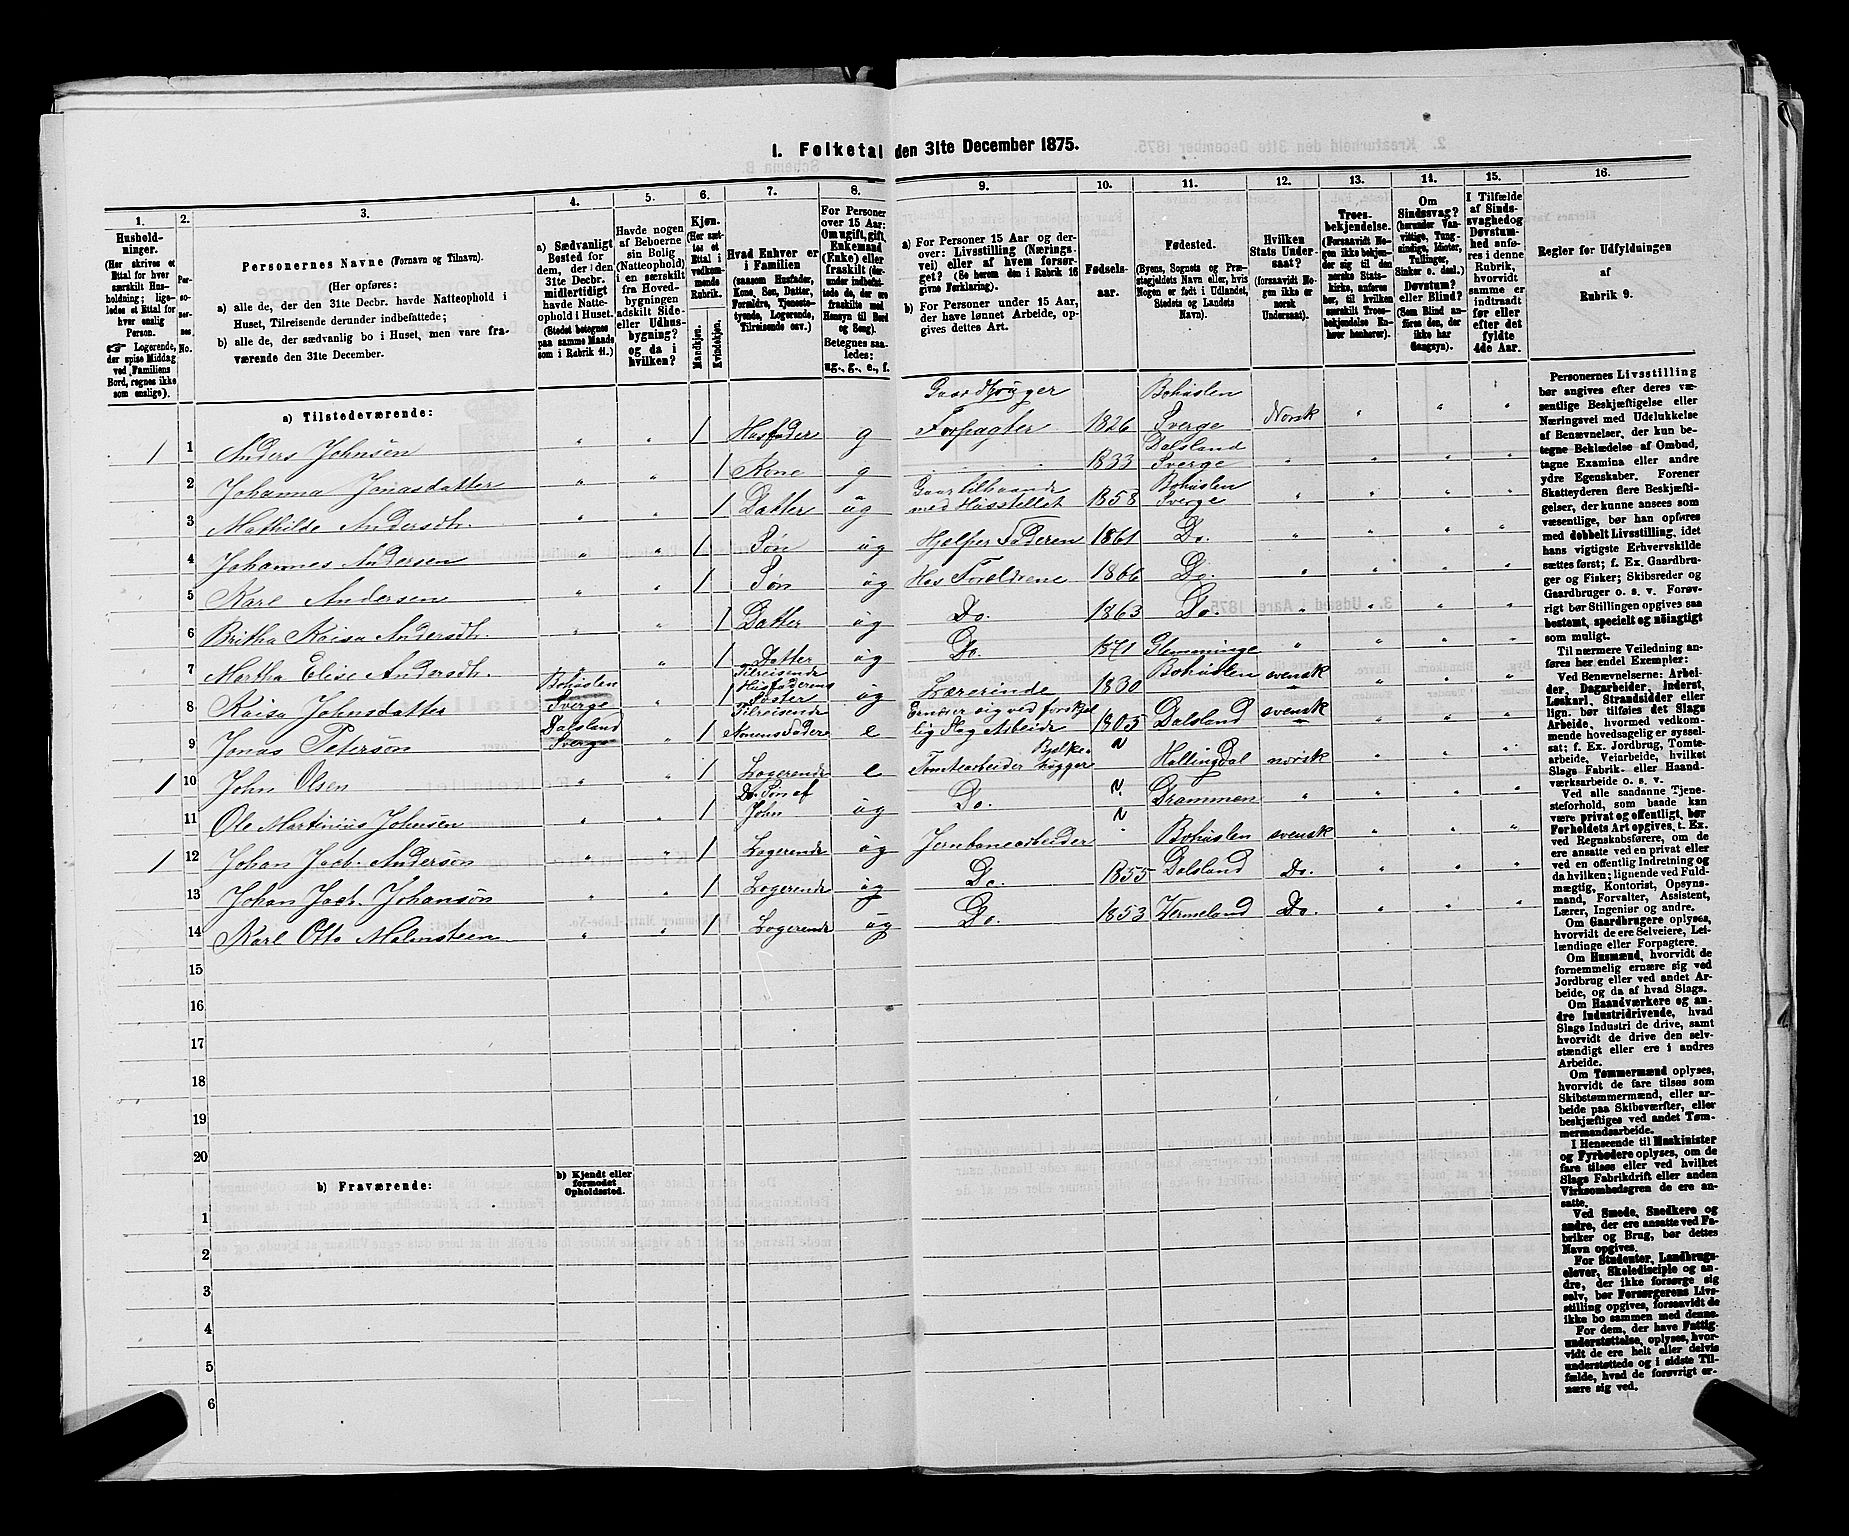 1. Folketal den 31te December 1875.
1. 2. 3. 4. 5. 6. 7. 8. 9. 10. 11. 12. 13. 14. 15. 16.
Hushold-
ninger.
(Her skrives et
Ettal for hver
særskilt Hus-
holdning; lige-
ledes et Ettal for
hver enslig
Person.
☞ Logerende,
der spise Middag
ved Familiens
Bord, regnes ikke
som enslige).
Per-
so-
ner-
nes
No.
Personernes Navne (Fornavn og Tilnavn).
(Her opføres:
a) alle de, der den 31te Decbr. havde Natteophold i
Huset, Tilreisende derunder indbefattede;
b) alle de, der sædvanlig bo i Huset, men vare fra-
værende den 31te December.
a) Sædvanligt
Bosted for
dem, der den
31te Decbr.
midlertidigt
havde Natte-
ophold i Huset.
(Stedet betegnes
paa samme Maade
som i Rubrik 11.)
Havde nogen
af Beboerne
sin Bolig
(Natteophold)
i en særskilt
fra Hoved-
bygningen
adskilt Side-
eller Udhus-
bygning?
og da i
hvilken?
Kjøn.
(Her sæt-
tes et
Ettal i
vedkom-
mende
Rubrik.
Mandkjøn.
Kvindekjøn.
Hvad Enhver er
i Familien
(saasom Husfader,
Kone, Søn, Datter,
Forældre, Tjeneste-
tyende, Logerende,
Tilreisende osv.)
For Personer
over 15 Aar:
Om ugift, gift,
Enkemand
(Enke) eller
fraskilt (der-
under indbefat-
tede de, der ere
fraskilte med
Hensyn til Bord
og Seng).
Betegnes saa-
ledes:
ug., g., e., f.
a) For Personer 15 Aar og der-
over: Livsstilling (Nærings-
vei) eller af hvem forsør-
get? (Se herom den i Rubrik 16
givne Forklaring).
b) For Personer under 15 Aar,
der have lønnet Arbeide, op-
gives dettes Art.
Fødsels-
aar.
Fødested.
(Byens, Sognets og Præ-
stegjeldets Navn eller, hvis
Nogen er født i Udlandet,
Stedets og Landets
Navn).
Hvilken
Stats Under-
saat?
(forsaavidt No-
gen ikke er
norsk
Undersaat).
Troes-
bekjendelse.
(Forsaavidt No-
gen ikke bekjen-
der sig til den
norske Stats-
kirke, anføres
her, til hvilken
særskilt Troes-
bekjendelse En-
hver henhører).
Om
Sindssvag?
(herunder Van-
vittige, Tung-
sindige, Idioter,
Tullinger,
Sinker o. desl.)
Døvstum?
eller Blind?
(Som Blind an-
føres den, der
ikke har
Gangsyn).
I Tilfælde
af Sinds-
svaghed og
Døvstum-
hed anfø-
res i denne
Rubrik,
hvorvidt
samme er
indtraadt
før eller
efter det
fyldte
4de Aar.
Regler for Udfyldningen
af
Rubrik 9.
a) Tilstedeværende:
1 1 Anders Johnsen " " 1 Husfader g Gaardbruger Forpagter 1826 Bohuslen Sverge Norsk " " "
2 Johanna Jonasdatter " " 1 Kone g 1833 Dalsland Sverge " " " "
3 Mathilde Andersdtr. " " 1 Datter ug Gaar tilhaande med Husstellet 1858 Bohuslen Sverge " " " "
4 Johannes Andersen " " 1 Søn ug Hjælper Faderen 1861 Do. " " " "
5 Karl Andersen " " 1 Søn ug Hos Forældrene 1866 Do. " " " "
6 Britha Kaisa Andersdtr. " " 1 Datter ug Do. 1863 Do. " " " "
7 Martha Elise Andersdtr. " " 1 Datter ug Do. 1871 Glemminge " " " "
8 Kaisa Johnsdatter Bohuslen Sverge 1 Tilreisende Husfaderens Søster ug Lærerinde 1830 Bohuslen svensk " " "
9 Jonas Peterson Dalsland Sverge " 1 Tilreisende Konens Fader e Ernærer sig ved forskjellig Slag Arbeide 1805 Dalsland svensk " " "
1 10 John Olsen " " 1 Logerende e Tomtearbeider Bjelkehugger ? Hallingdal norsk " " "
11 Ole Martinius Johnsen " " 1 Do. Søn af John ug Do. ? Drammen " " " "
1 12 Johan Jacb. Anderson " " 1 Logerende ug Jernbanearbeider ? Bohuslen svensk " " "
13 Johan Jacb. Johanson " " 1 Logerende ug Do. 1855 Dalsland Do. " " "
14 Karl Otto Malmsteen " " 1 Logerende ug Do. 1853 Vermeland Do. " " "
15
16
17
18
19
20
b) Fraværende:
b) Kjendt eller
formodet
Opholdssted.
1
2
3
4
5
6
Personernes Livsstilling
bør angives efter deres væ-
sentlige Beskjæftigelse eller
Næringsvei med Udelukkelse
af Benævnelser, der kun be-
tegne Beklædelse af Ombud,
tagne Examina eller andre
ydre Egenskaber. Forener
Skatteyderen flere Beskjæfti-
gelser, der kunne ansees som
væsentlige, bør han opføres
med dobbelt Livsstilling, idet
hans vigtigste Erhvervskilde
sættes først; f. Ex. Gaardbru-
ger og Fisker; Skibsreder og
Gaardbruger o. s. v. Forøv-
rigt bør Stillingen opgives saa
bestemt, specielt og nøiagtigt
som muligt.
Til nærmere Veiledning an-
føres her endel Exempler:
Ved Benævnelserne: Arbei-
der, Dagarbeider, Inderst,
Løskarl, Strandsidder eller
lign. bør tilføies det Slags
Arbeide, hvormed vedkom-
mende hovedsagelig er syssel-
sat; f. Ex. Jordbrug, Tomte-
arbeide, Veiarbeide, hvilket
Slags Fabrik- eller Haand-
værksarbeide o. s. v.
Ved alle saadanne Tjene-
steforhold, som baade kan
være privat og offentligt, bør
Forholdets Art opgives, t. Ex.
ved Regnskabsførere, om de
ere ansatte ved en privat eller
ved en offentlig Indretning og
da hvilken; lignende ved Fuld-
mægtig, Kontorist, Opsyns-
mand, Forvalter, Assistent,
Lærer, Ingeniør og andre.
Om Gaardbrugere oplyses,
hvorvidt de ere Selveiere, Lei-
lændinge eller Forpagtere.
Om Husmænd, hvorvidt de
fornemmelig ernære sig ved
Jordbrug eller ved andet Ar-
beide, og da af hvad Slags.
Om Haandværkere og an-
dre industridrivende, hvad
Slags Industri de drive, samt
hvorvidt de drive den selv-
stændigt eller ere i andres
Arbeide.
Om Tømmermænd oplyses,
hvorvidt de fare tilsøs som
Skibstømmermænd, eller ar-
beide paa Skibsværfter, eller
beskjæftiges ved andet Tøm-
mermandsarbeide.
I Henseende til Maskinister
og Fyrbødere oplyses, om de
fare tilsøs eller ved hvilket
Slags Fabrikdrift eller anden
Virksomhedsgren de ere an-
satte.
Ved Smede, Snedkere og
andre, der ere ansatte ved Fa-
briker og Brug, bør dettes
Navn opgives.
For Studenter, Landbrugs-
elever, Skoledisciple og an-
dre, der ikke forsørge sig
selv, bør Forsørgerens Livs-
stilling opgives, forsaavidt de
ikke bo sammen med denne.
For dem, der have Fattig-
understøttelse, oplyses, hvor-
vidt de ere helt eller delvis
understøttede og i sidste Til-
fælde, hvad de forøvrigt er-
nære sig ved.